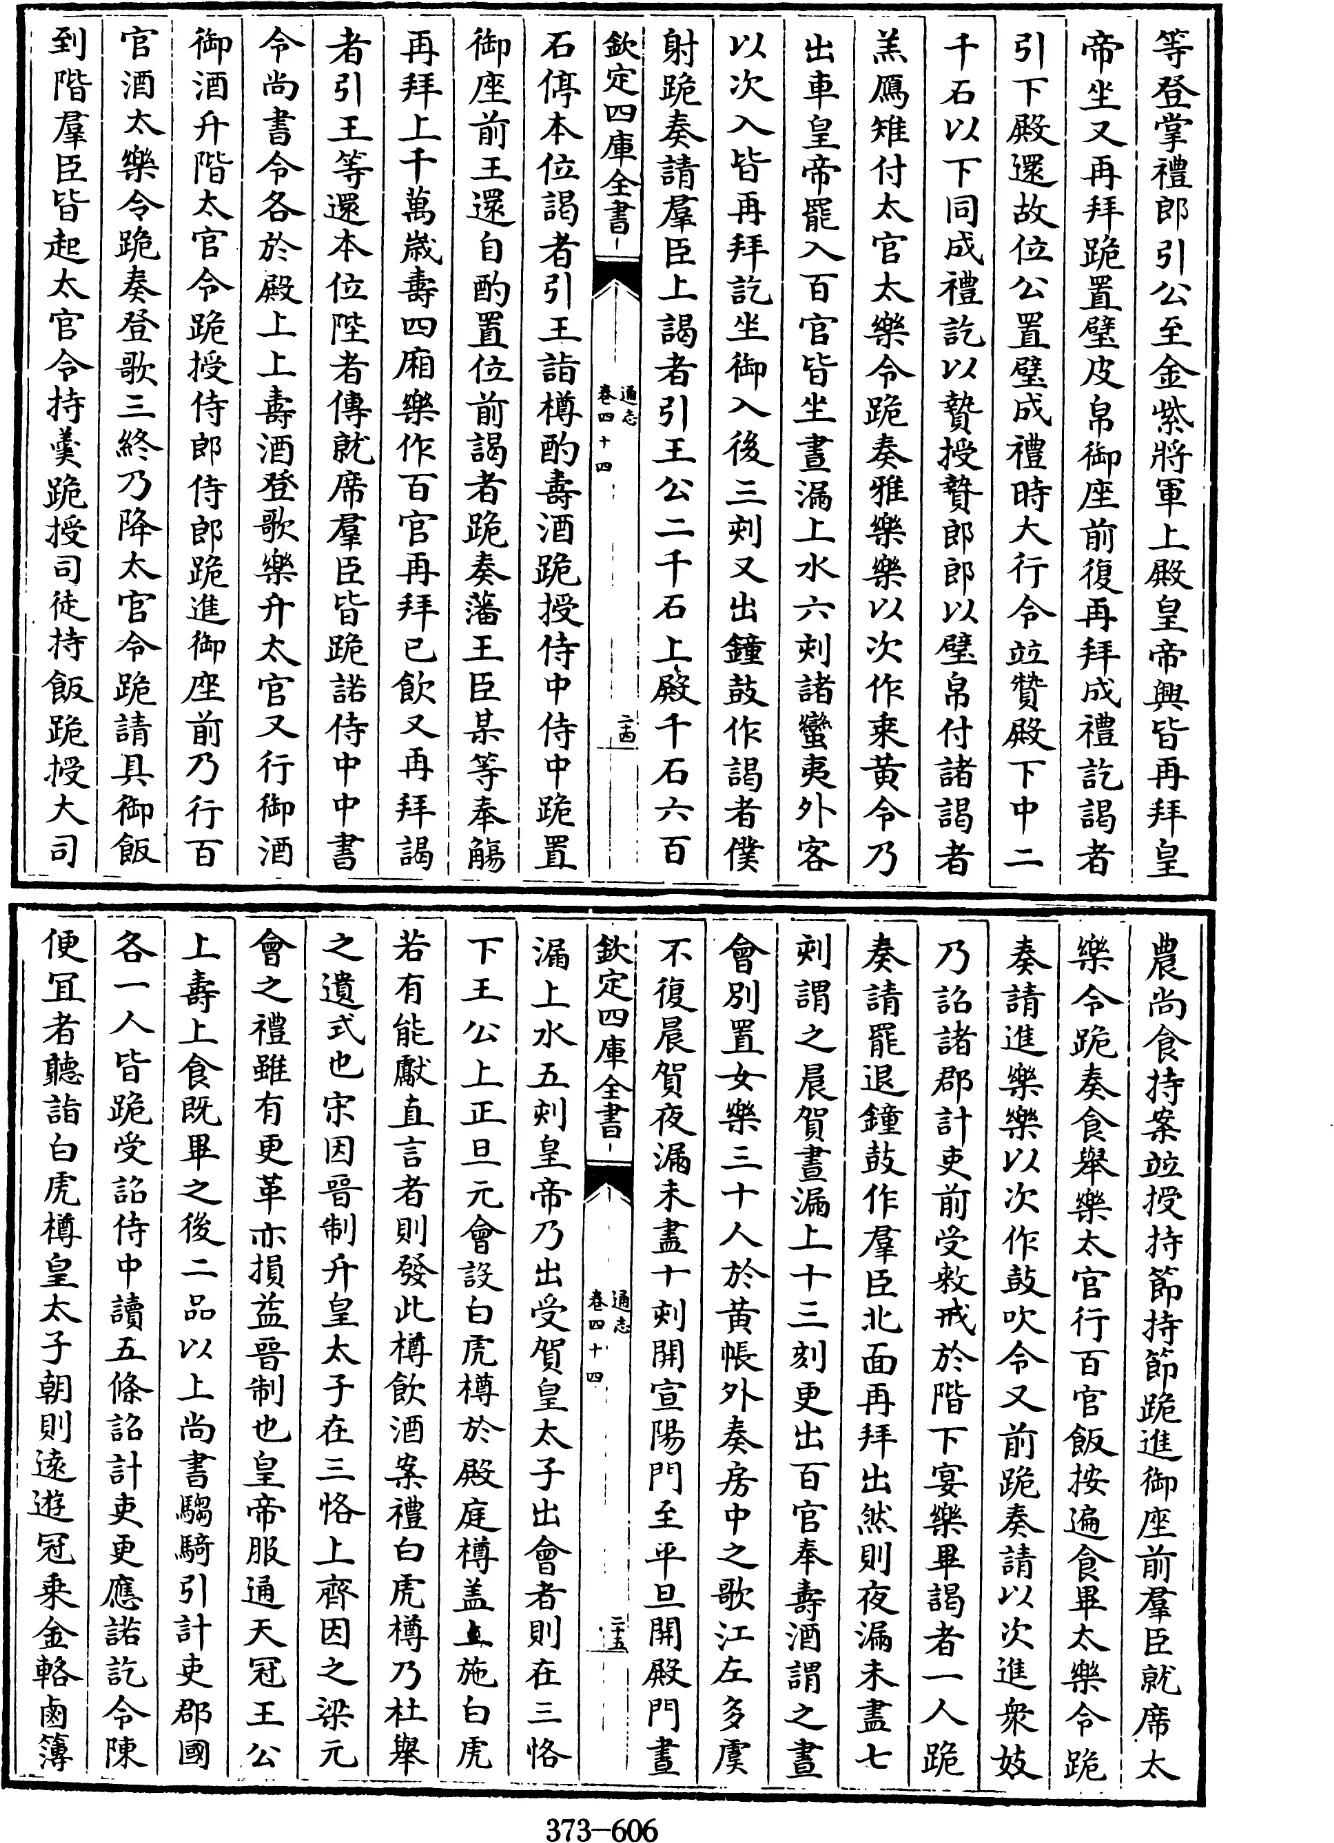 等登掌禮郎引公至金紫將軍上殿皇帝興皆再拜皇
帝坐又再拜跪置璧皮帛御座前復再拜成禮訖謁者
引下殿還故位公置璧成禮時大行令竝贊殿下中二
千石以下同成禮訖以贄授贄郎郎以璧帛付諸謁者
羔鴈雉付太官太樂令跪奏雅樂樂以次作乗黄令乃
出車皇帝罷入百官皆坐晝漏上水六刻諸蠻夷外客
以次入皆再拜訖坐御入後三刻又出鐘鼓作謁者僕
射跪奏請羣臣上謁者引王公二千石上殿千石六百
欽定四庫全書
通志
卷四十四
二十四
石停本位謁者引王詣樽酌壽酒跪授侍中侍中跪置
御座前王還自酌置位前謁者跪奏藩王臣某等奉觴
再拜上千萬歳壽四廂樂作百官再拜已飲又再拜謁
者引王等還本位陛者傳就席羣臣皆跪諾侍中中書
令尚書令各於殿上上壽酒登歌樂升太官又行御酒
御酒升階太官令跪授侍郎侍郎跪進御座前乃行百
官酒太樂令跪奏登歌三終乃降太官令跪請具御飯
到階羣臣皆起太官令持羮跪授司徒持飯跪授大司
農尚食持案竝授持節持節跪進御座前羣臣就席太
樂令跪奏食舉樂太官行百官飯按遍食畢太樂令跪
奏請進樂樂以次作鼓吹令又前跪奏請以次進衆妓
乃詔諸郡計吏前受敕戒於階下宴樂畢謁者一人跪
奏請罷退鐘鼓作羣臣北面再拜出然則夜漏未盡七
刻謂之晨賀晝漏上十三刻更出百官奉壽酒謂之晝
會別置女樂三十人於黄帳外奏房中之歌江左多虞
不復晨賀夜漏未盡十刻開宣陽門至平旦開殿門晝
欽定四庫全書
通志
卷四十四
二十五
漏上水五刻皇帝乃出受賀皇太子出會者則在三恪
下王公上正旦元會設白虎樽於殿庭樽盖上施白虎
若有能獻直言者則發此樽飲酒案禮白虎樽乃杜舉
之遺式也宋因晉制升皇太子在三恪上齊因之梁元
會之禮雖有更革亦損益晉制也皇帝服通天冠王公
上壽上食既畢之後二品以上尚書騶騎引計吏郡國
各一人皆跪受詔侍中讀五條詔計吏更應諾訖令陳
便宜者聽詣白虎樽皇太子朝則遠遊冠乗金輅鹵簿
373-606